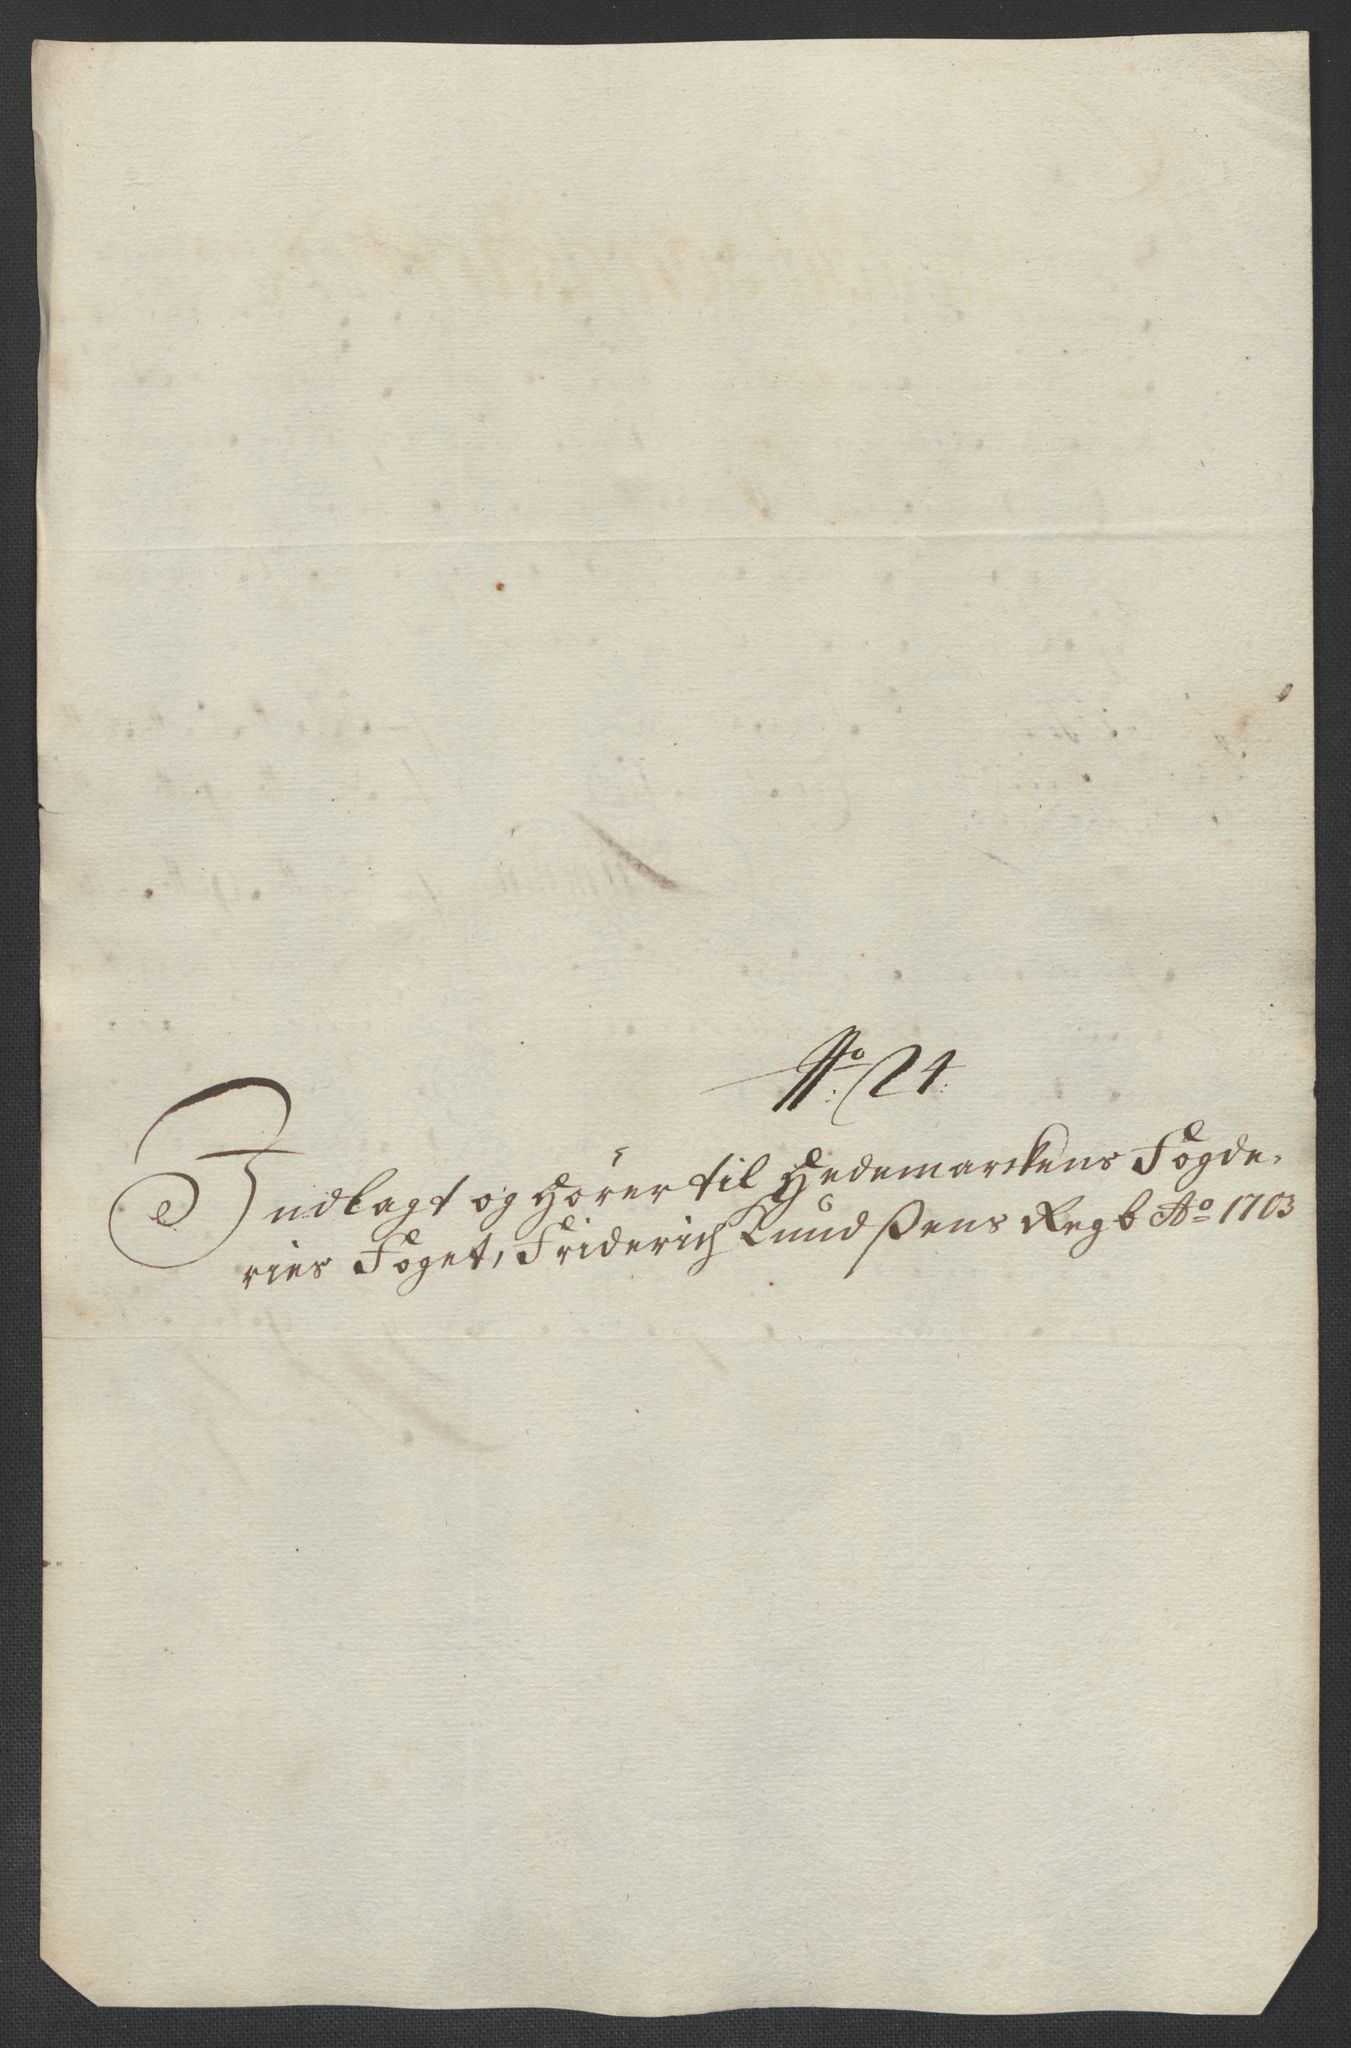 No: 24:
Indlagt og hörer til Hedemarckens Fogde-
ries Foget, Friderich Knudßens Regb Ao 1703